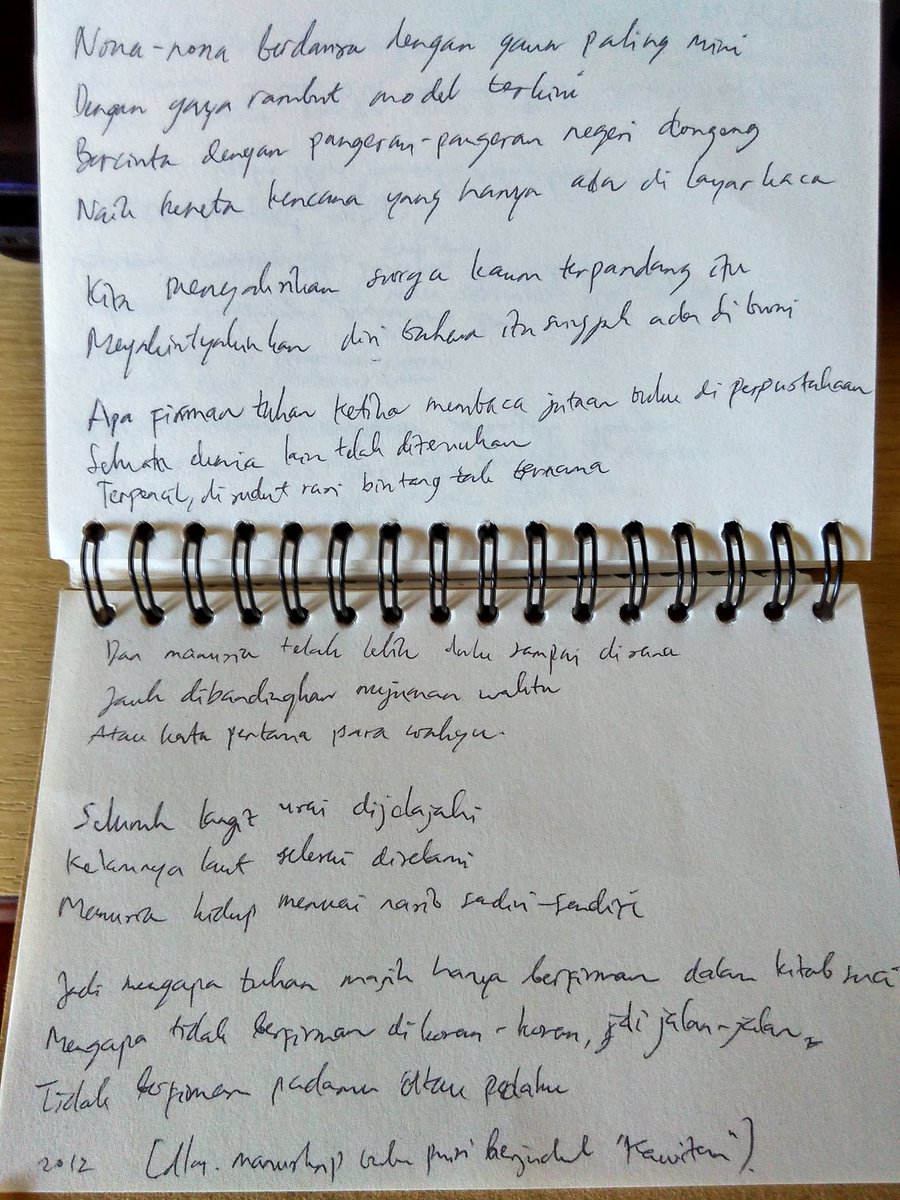 Nona-nona berdansa dengan gaun paling mini
Dengan gaya rambut model terkini
Bercinta dengan pangeran-pangeran negeri dongeng
Naik kereta kencana yang hanya ada di layar kaca
Kita menyaksikan surga kaum terpandang itu
diri bahwa itu sungguh ada di bumi
Apa firman tuhan ketika membaca jutaan buku di perpustakaan
Sebuah dunia lain telah ditemukan
Terpencil, di sudut rasi bintang tak bernama
Dan manusia telah lebih dulu sampai disana
Jauh dibandingkan waktu
Atau kata pertama para wahyu.
Seluruh langit usai dijelajahi
laut selesai diselami
Manusia hidup menuai nasib sendiri-sendiri
Jadi mengapa tuhan masih hanya berfirman dalam kitab suci
Mengapa tidak berfirman di koran-koran, di jalan-jalan,
Tidak berfirman padamu atau padaku
2012 [dlm. manuskrip buku puisi berjudul "Kawitan"].